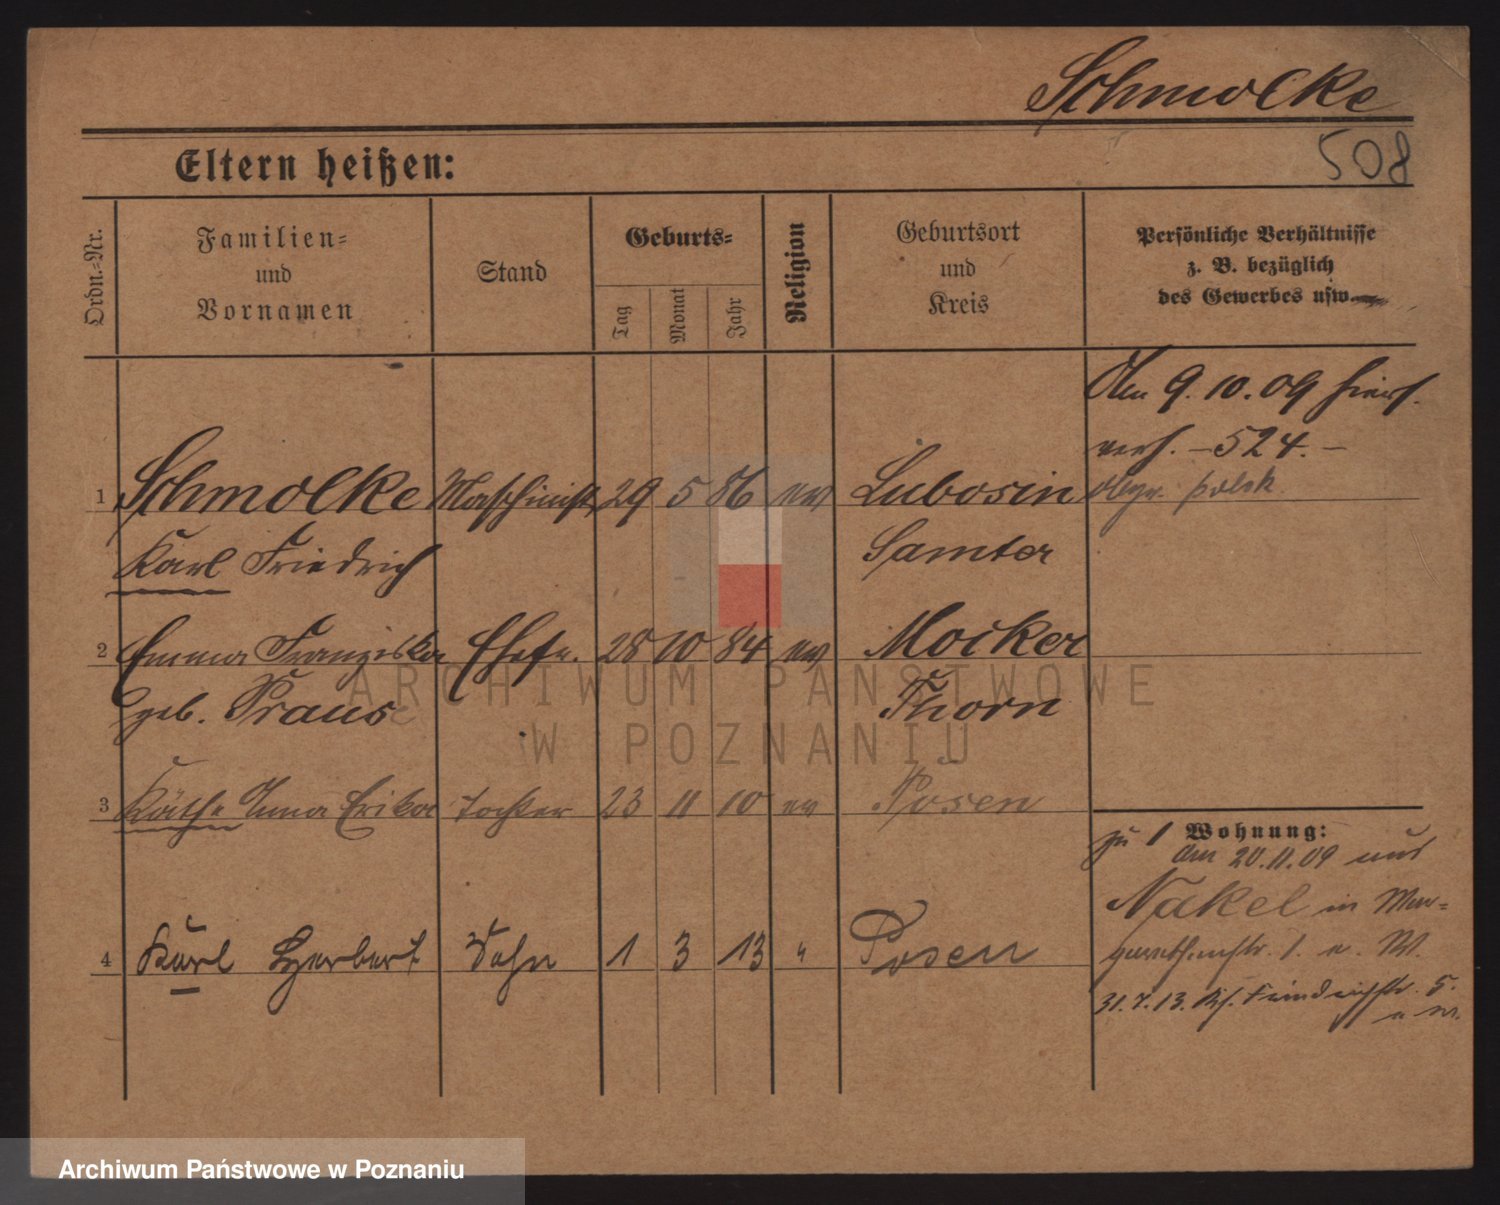 Schmolke
508
Eltern heißen:
Ordn.-Nr.
Familien-
und
Vornamen
Stand
Geburts-
Tag
Monat
Jahr
Religion
Geburtsort
und
Kreis
Persönliche Verhältnisse
z. B. bezüglich
des Gewerbes usw.
Am 9.10.09 hiers.
verh. – 524. –
1 Schmolke Maschinist 29 5 86 ev Lubosin
Karl Friedrich Samter
2 Emma Franziska Ehefr. 28 10 84 ev Mocker
geb. Praus Thorn
3 Käthe Anna Erika Tochter 23 11 10 ev Posen
4 Karl Herbert Sohn 1 3 13 " Posen
Wohnung:
zu 1
Am 20.11.09 aus
Nakel in Mar-
1.
31.7.13. 5.
ARCHIWUM PAŃSTWOWE
W POZNANIU
Archiwum Państwowe w Poznaniu